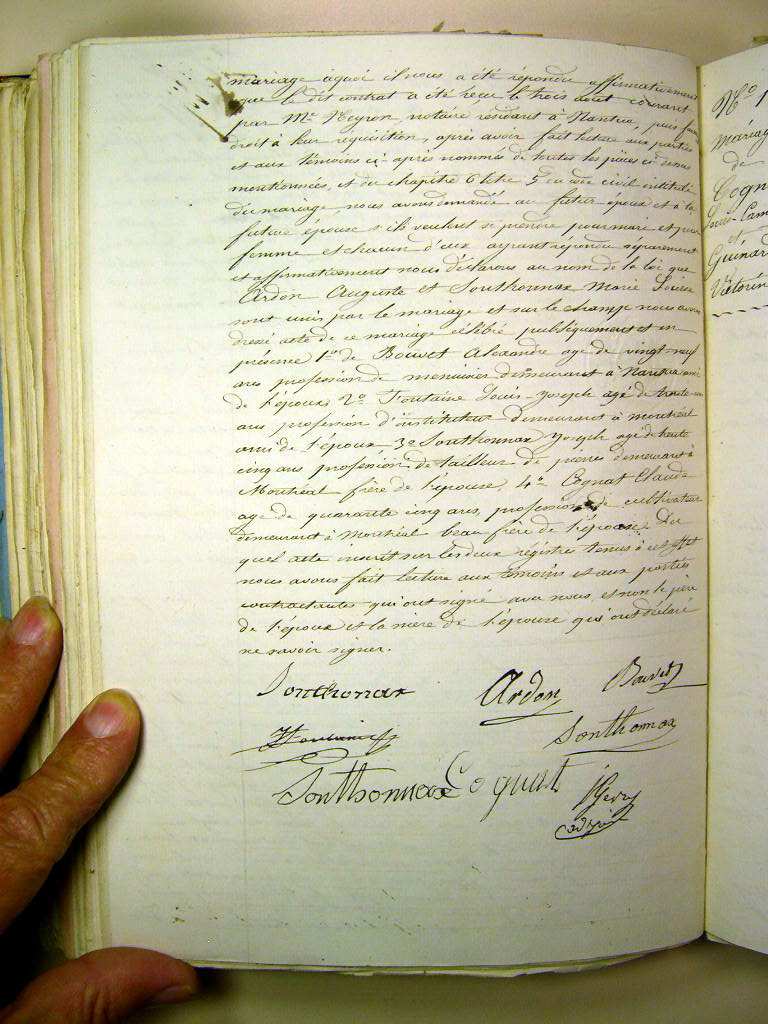 mariage à quoi il nous a été répondu affirmativement
que le dit contrat a été recu le trois aout courant
par Me Neyron, notaire résidant à Nantua, puis faisant
droit à leur réquisition, après avoir fait lecture aux parties
et aux témoins ci après nommés de toutes les pièces ci dessus
mentionnées, et du chapitre 6 titre 5 du code civil intitulé
du mariage nous avons demandé au futur époux et à la
future épouse s'ils veulent se prendre pour mari et pour
femme et chacun d'eux ayant répondu séparement
et affirmativement nous déclarons au nom de la loi que
Ardon Auguste et Sonthonnax Marie Louise
sont unis par le mariage et sur le champ nous avons
dressé acte de ce mariage célébré publiquement et en
présence 1o de Bouvet Alexandre agé de vingt-neuf
ans profession de menuisier demeurant à Nantua ami
de l'époux 2o Fontaine Louis-Joseph agé de trente
ans profession d'instituteur demeurant à Montréal
ami de l'époux 3o Sonthonnax Joseph agé de trente
cinq ans profession de tailleur de pierres demeurant à
Montréal frère de l'épouse, 4o Cognat Claude
agé de quarante cinq ans, profession de cultivateur
demeurant à Montréal beau frère de l'épouse. Du
quel acte inscrit sur les deux régistres tenus à cet effet
nous avons fait lecture aux témoins et aux parties
contractantes qui ont signé avec nous, et non le père
de l'époux et la mère de l'épouse qui ont déclaré
ne savoir signer.
Sonthonax Ardon Bouvet
Fontaine Sonthonnax
Sonthonnax Cognat
No
mariage
de
Cogn
et
Guinard
Victorin